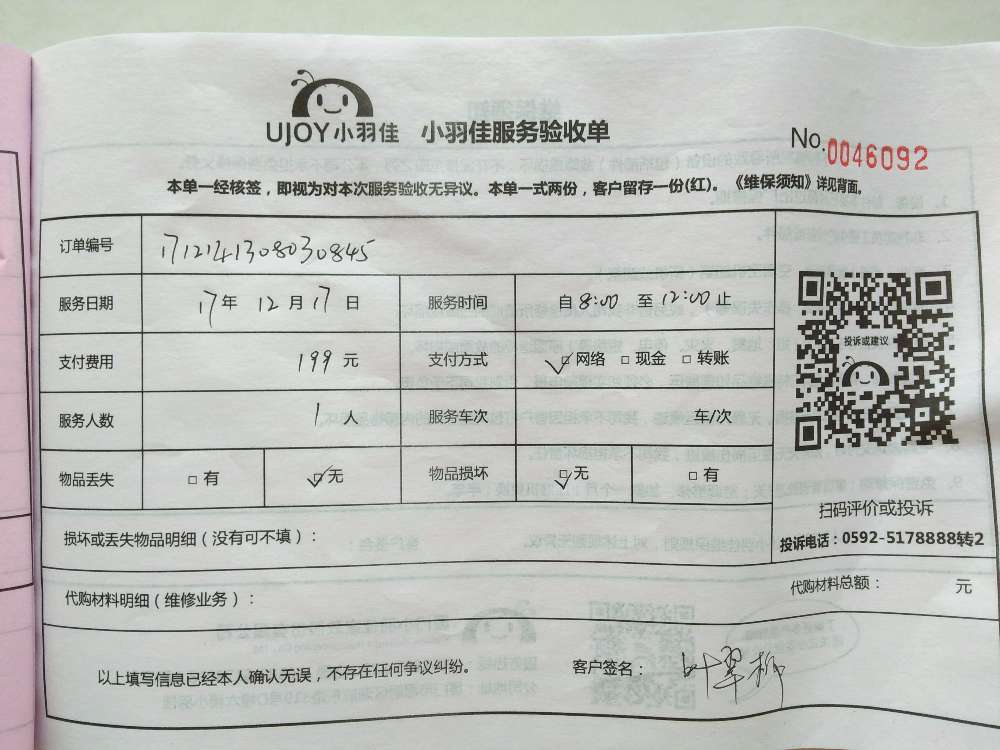 UJOY小羽佳 小羽佳服务验收单
No.0046092
本单一经核签，即视为对本次服务验收无异议。本单一式两份，客户留存一份(红)。《维保须知》详见背面。
订单编号 17121413080030845
服务日期 17年 12月 17日 服务时间 自 8:00 至 12:00 止
支付费用 199 元 支付方式 ☑网络 □现金 □转账
服务人数 1 人 服务车次 车/次
物品丢失 □有 ☑无 物品损坏 ☑无 □有
投诉或建议
扫码评价或投诉
投诉电话：0592-5178888转2
损坏或丢失物品明细（没有可不填）：
代购材料明细（维修业务）： 代购材料总额： 元
以上填写信息已经本人确认无误，不存在任何争议纠纷。 客户签名： 叶翠柳